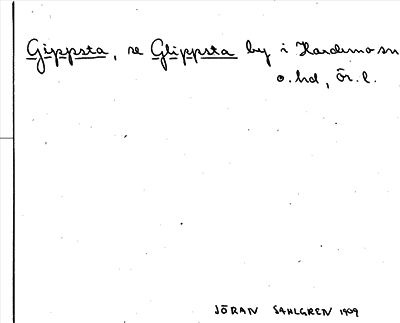 Gippsta, se Glippsta by i Hardemo sn
o. hd, Ör. l.
JÖRAN SAHLGREN 1909